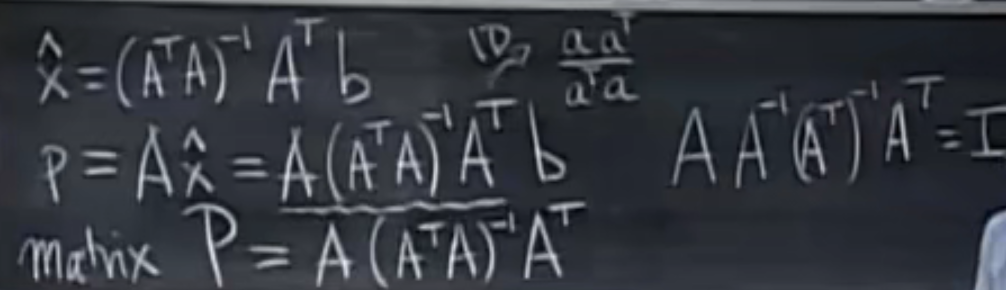 x̂ = (AᵀA)⁻¹ Aᵀ b
1D aaᵀ / aᵀa
p = Ax̂ = A(AᵀA)⁻¹Aᵀ b
A A⁻¹(Aᵀ)⁻¹Aᵀ = I
matrix P = A(AᵀA)⁻¹Aᵀ